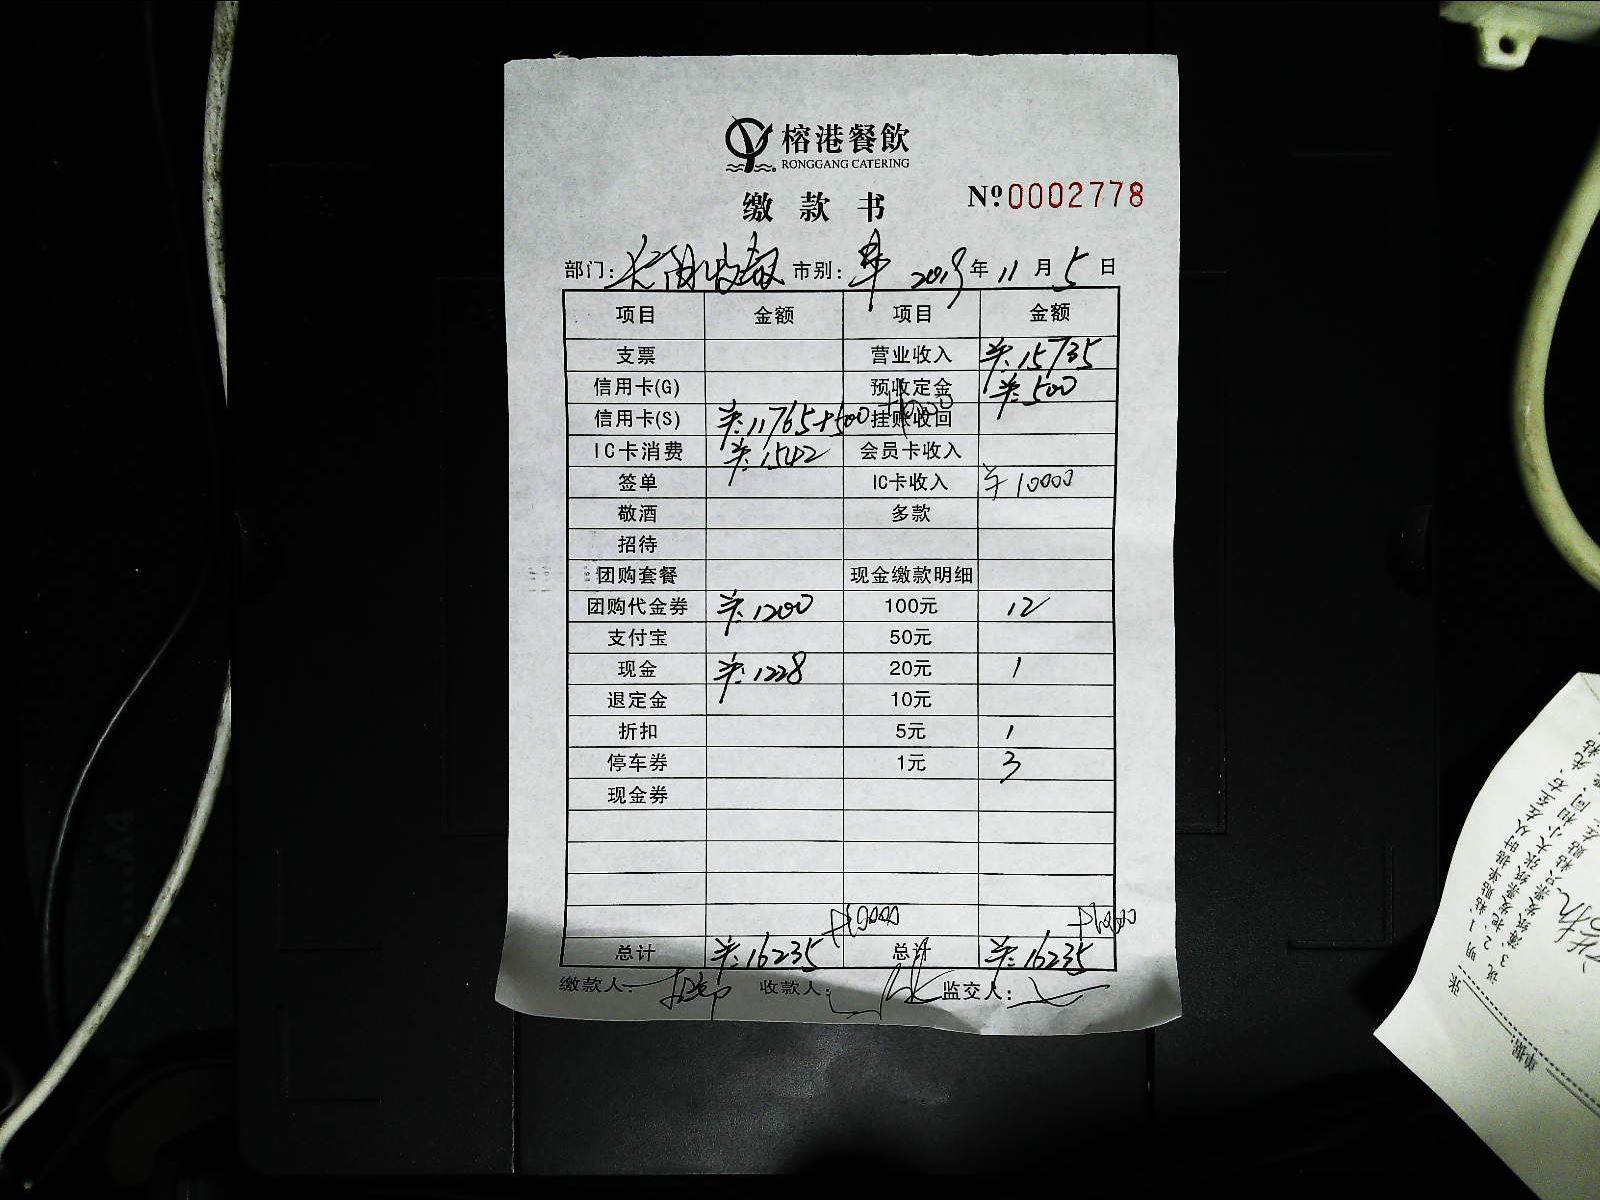 榕港餐飲
RONGGANG CATERING
缴款书 №0002778
部门: 市别: 2019年11月5日
项目 金额 项目 金额
支票 营业收入 ¥:15735
信用卡(G) 预收定金 ¥:500
信用卡(S) ¥:11765+500+10000 挂账收回
IC卡消费 ¥:1542 会员卡收入
签单 IC卡收入 ¥10000
敬酒 多款
招待
团购套餐 现金缴款明细
团购代金券 ¥:1200 100元 12
支付宝 50元
现金 ¥:1228 20元 1
退定金 10元
折扣 5元 1
停车券 1元 3
现金券
+10000 +10000
总计 ¥:16235 总计 ¥:16235
缴款人: 收款人: 监交人:
张
说明
1、粘贴单据时从左至右、先粘
2、把发票纸张大小相同、
3、薄纸发票只粘贴在
单据: